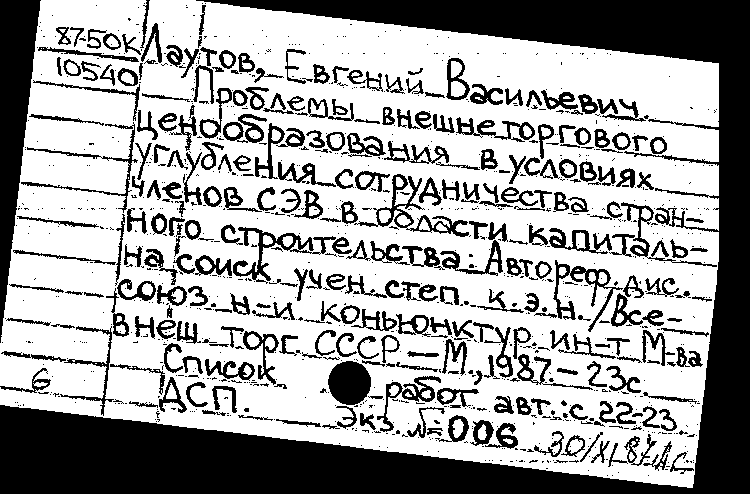 87-50К Лаутов, Евгений Васильевич.
10540 Проблемы внешнеторгового
ценообразования в условиях
углубления сотрудничества стран-
членов СЭВ в области капиталь-
ного строительства: Автореф. дис.
на соиск. учен. степ. к.э.н. /Все-
союз. н.-и коньюнктур. ин-т М-ва
внеш. торг. СССР.—М., 1987.—23с.
Список работ авт.: с. 22-23.
6 ДСП. Экз. №006 30/XI 87